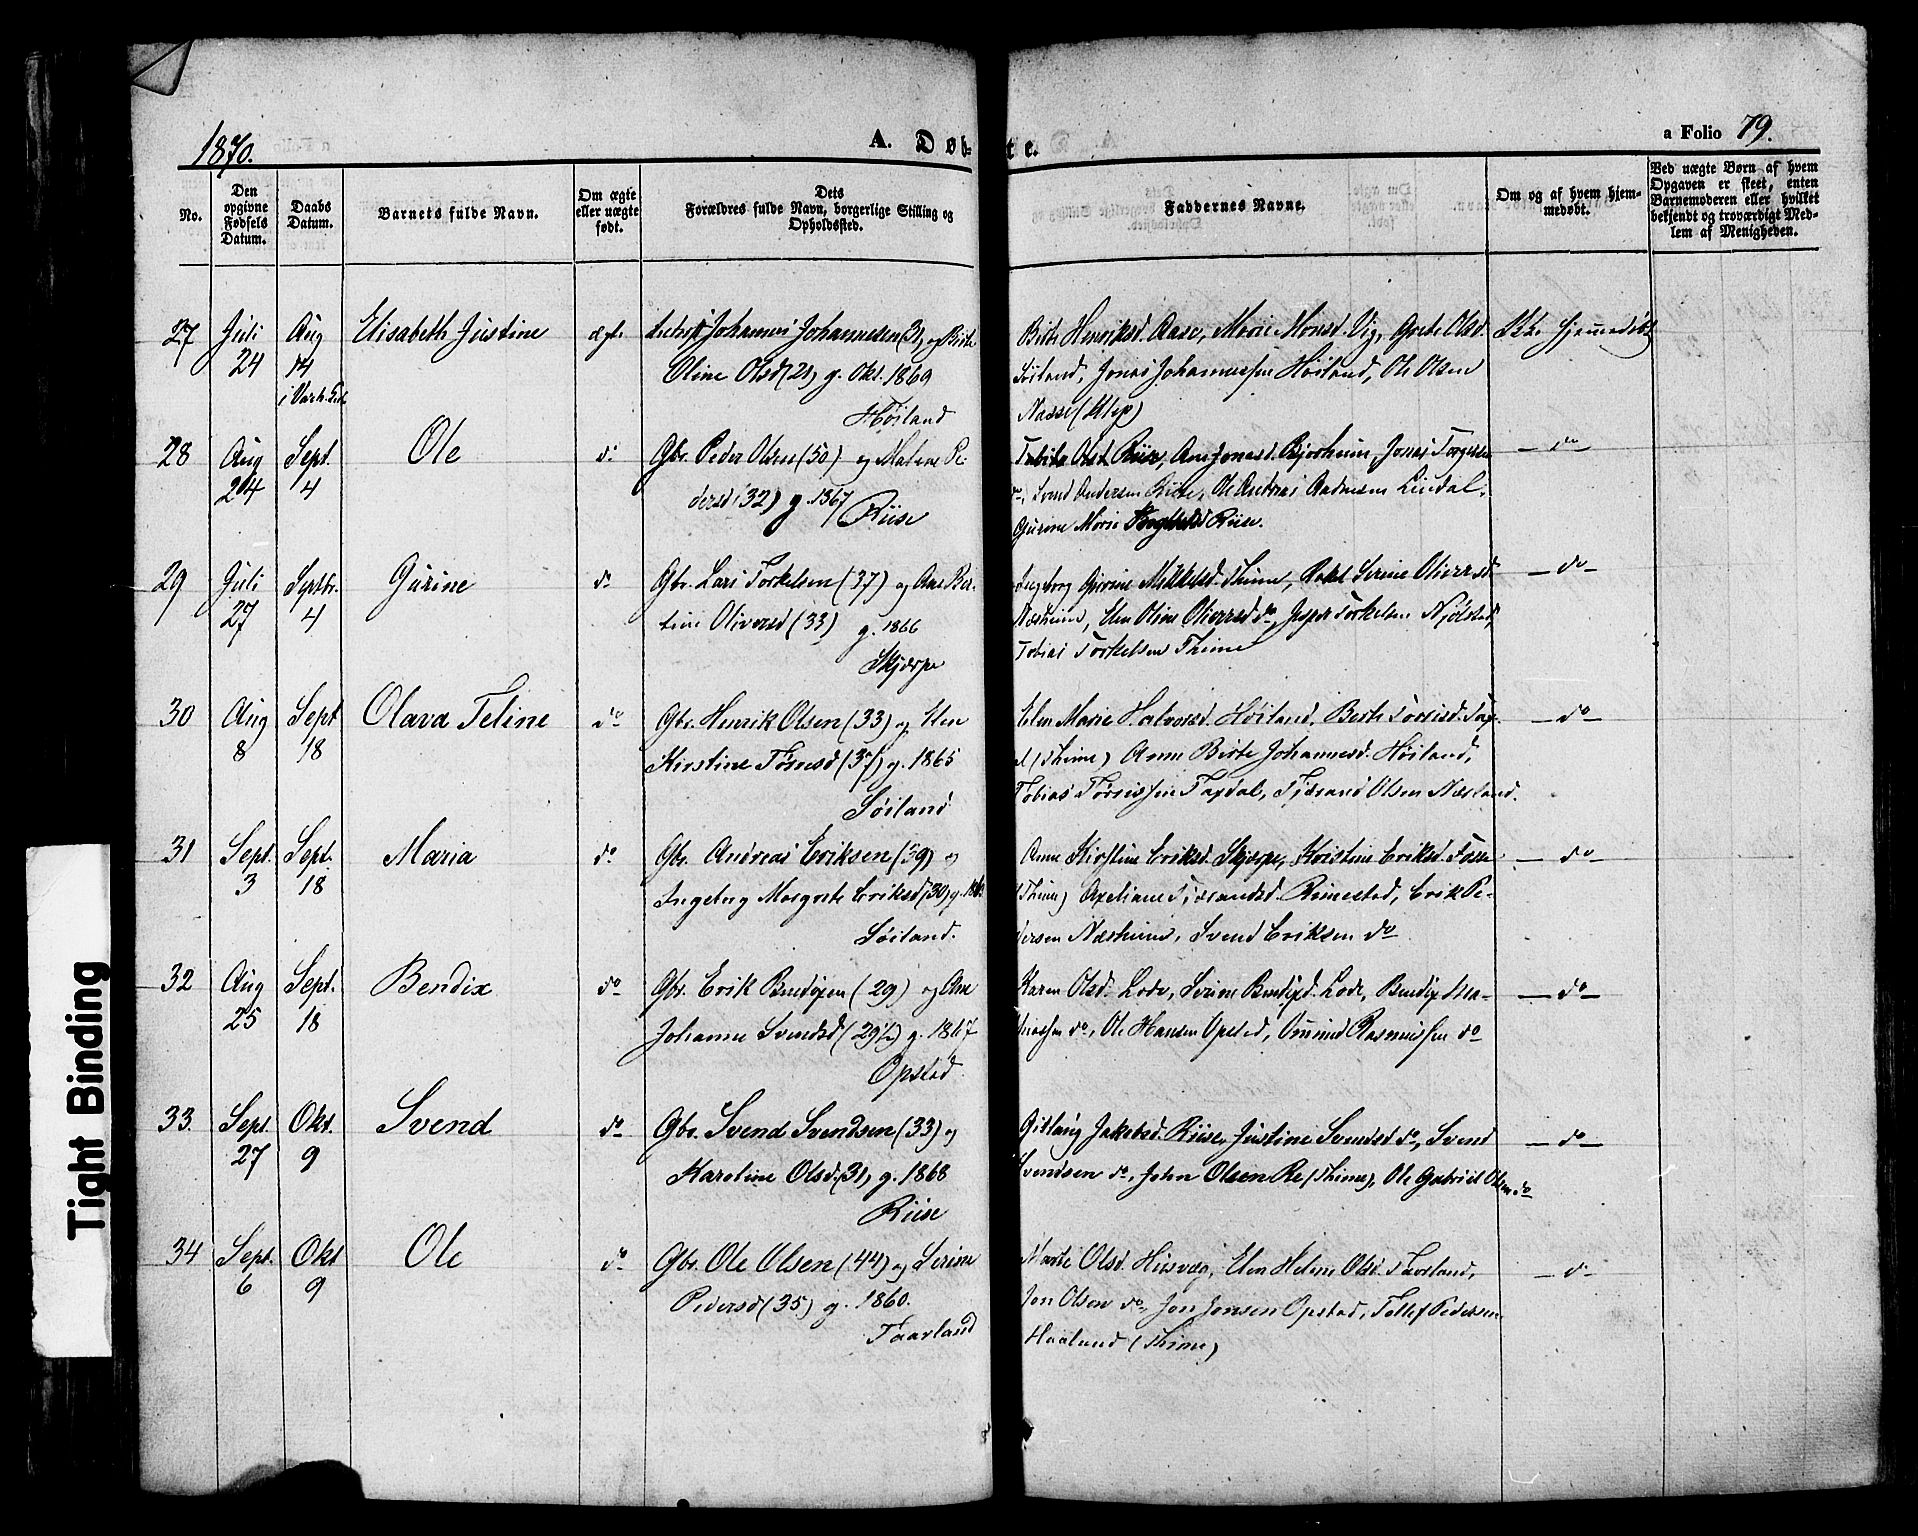 1870.
A. Døbte.
a Folio 79.
No.
Den opgivne Fødsels Datum.
Daabs Datum.
Barnets fulde Navn.
Om ægte eller uægte født.
Dets Forældres fulde Navn, borgerlige Stilling og Opholdssted.
Faddernes Navne.
Om og af hvem hjemmedøbt.
Ved uægte Børn af hvem Opgaven er skeet, enten Barnemoderen eller hvilket bekjendt og troværdigt Medlem af Menigheden.
27 Juli 24 Aug 14 Elisabeth Justine ægte Johannes Johannesen (31) og Birte
Oline Olsd (21) g. Okt. 1869
Høiland
Birte Henriksd. Aase, Marie Monsd. Vig, Grete Olsd.
Søiland, Jonas Johannessen Høiland, Ole Olsen
Nasse (Klep)
Ikke hjemmedøbt
28 Aug 24 Sept. 4 Ole do Gbr. Peder Olsen (50) og Malene Pe-
dersd (32) g. 1867
Riise
Tabita Olsd. Riise, Ane Jonasd. Bjorheim, Jonas Torgersen
do, Svend Andersen Riise, Ole Andreas Andersen Lindal,
Gurine Marie Riise.
— do —
29 Juli 27 Septbr. 4 Gurine do Gbr. Lars Torkelsen (37) og Ane Ber-
tine Oliversd (33) g. 1866
Skjærpe
Ingeborg Gurine Mikkelsd. Thime, Rakel Serine Oliversd.
Næsheim, Elen Oline Oliversd do, Jesper Torkelsen Njølstad,
Tobias Torkelsen Thime
— do —
30 Aug 8 Sept 18 Olava Teline do Gbr. Henrik Olsen (33) og Elen
Kirstine Tørresd (37) g. 1865
Søiland
Elen Marie Halvorsd. Høiland, Berte Tørrisd. Tax-
dal (Thime) Anne Birte Johannesd. Høiland,
Tobias Tørrissen Taxdal, Tjærand Olsen Nærland.
— do —
31 Sept. 3 Sept. 18 Maria do Gbr. Andreas Eriksen (39) og
Ingeborg Margrete Eriksd (30) g.
Søiland.
Anne Kirstine Eriksd. Skjærpe, Kristine Eriksd. Fosse
(Thime) Axeliane Tjærandsd. Rimestad, Erik Pe-
dersen Næsheim, Svend Eriksen do
— do —
32 Aug 25 Sept. 18 Bendix do Gbr. Erik Bendixen (29) og Ane
Johanne Svendsd (29½) g. 1867
Opstad
Karen Olsd. Lode, Serine Bendixd. Lode, Bendix Ma-
thiassen do, Ole Hansen Opsted, Ommund Rasmussen do
— do —
33. Sept. 27 Okt. 9 Svend do Gbr. Svend Svendsen (33) og
Karoline Olsd. (31) g. 1868
Riise
Gitlaug Jakobsd. Riise, Justine Svendsd do, Svend
Svendsen do, John Olsen Re (Thime), Ole Gabriel Olsen do
— do —
34 Sept. 6 Okt 9 Ole do Gbr. Ole Olsen (44) og Serine
Pedersd (35) g. 1860.
Taarland
Marte Olsd. Husvæg, Elen Helene Olsd. Taarland,
Jon Olsen do, Jon Jonsen Opstad, Tollef Pedersen
Haaland (Thime)
— do —
Tight Binding